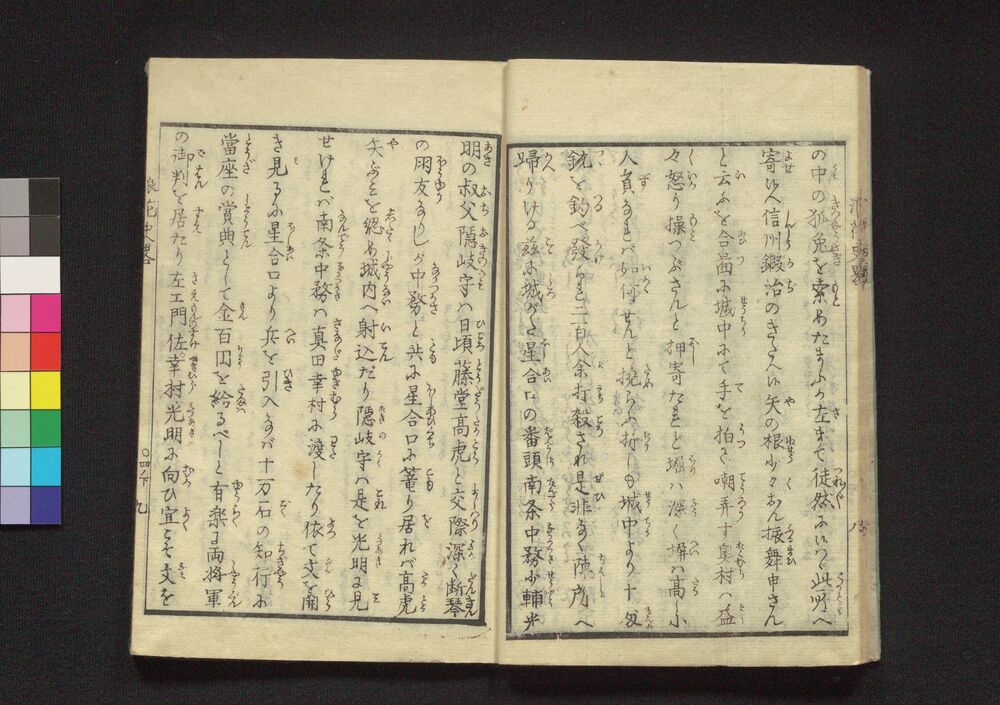 の中の狐兎を索めたまふか左まで徒然にハゞ此所へ
寄給へ信州鍛治のきたへし矢の根少々おん振舞申さん
と云ふを合図に城中にて手を拍て嘲弄す奥村ハ益
々怒り操つぶさんと押寄たれど堀ハ深く塀ハ高し小
人負なれバ如何せんと撓らふ折しも城中より十匁
銃を釣べ発られ二百人余打殺され是非なく陣処へ
帰りける茲に城がた星合口の番頭南条中務少輔光
明の叔父隠岐守ハ日頃藤堂高虎と交際深く断琴
の朋友なりしが中務と共に星合口に篭り居れバ高虎
矢ぶミを認め城内へ射込だり隠岐守ハ是を光明に見
せけれバ南条中務ハ真田幸村に渡したり依て文を開
き見るに星合口より兵を引入なバ十万石の知行に
當座の賞典として金百両を給るべしと有楽斎両将軍
の御判を居たり左エ門佐幸村光明に向ひ宜こそ文を
浪花史畧
〇四下 九